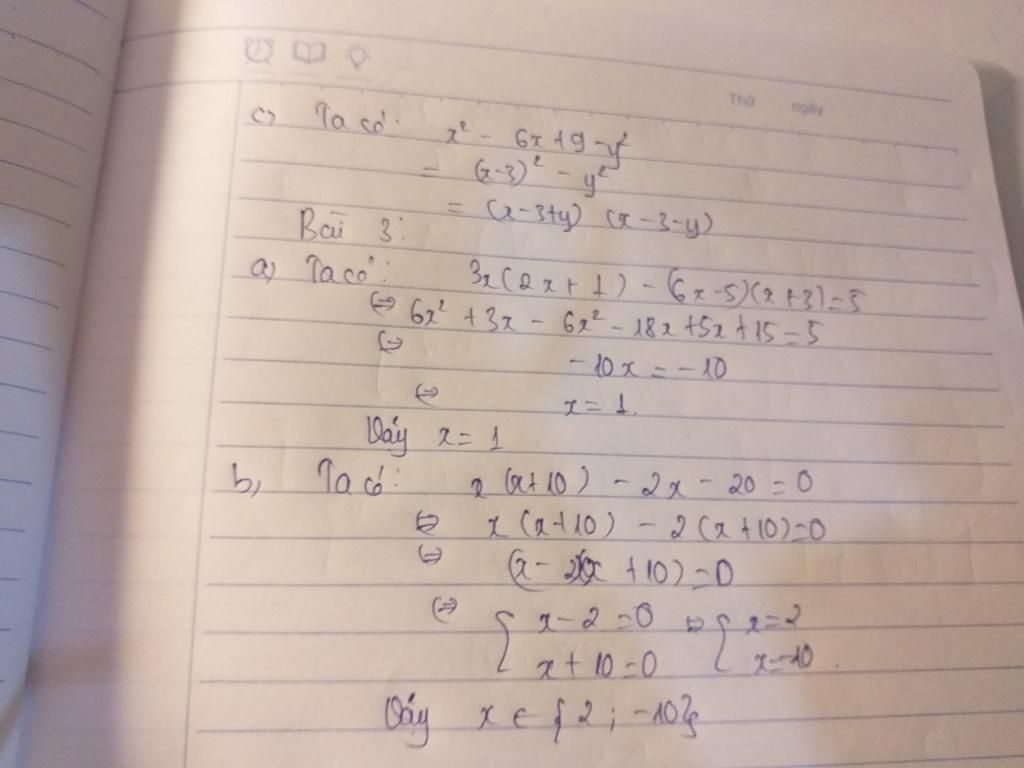 Thứ ngày
c) Ta có: x² - 6x + 9 - y²
= (x-3)² - y²
= (x-3+y) (x-3-y)
Bài 3:
a) Ta có: 3x(2x+1) - (6x-5)(x+3)=5
⇔ 6x² + 3x - 6x² - 18x + 5x + 15 = 5
⇔ -10x = -10
⇔ x = 1.
Vậy x = 1
b, Ta có: x(x+10) - 2x - 20 = 0
⇔ x(x+10) - 2(x+10)=0
⇔ (x-2)(x+10)=0
⇔ { x-2=0 ⇔ { x=2
x+10=0 x=-10.
Vậy x ∈ {2; -10}